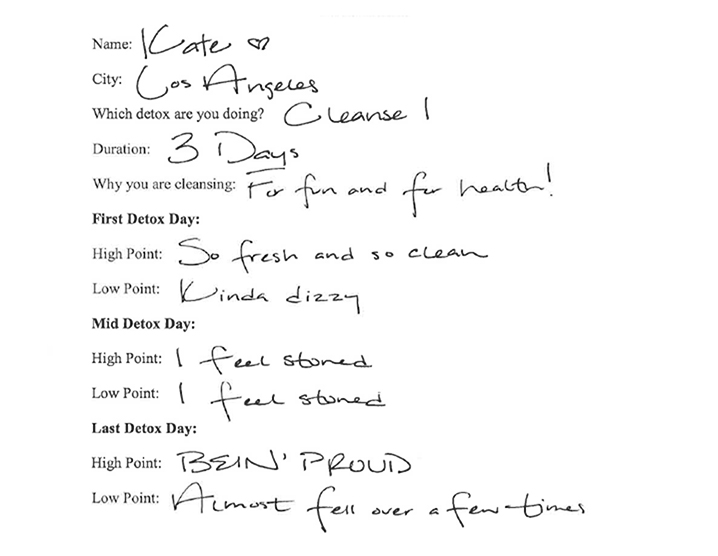 Name: Kate ♡
City: Los Angeles
Which detox are you doing? Cleanse 1
Duration: 3 Days
Why you are cleansing: For fun and for health!
First Detox Day:
High Point: So fresh and so clean
Low Point: Kinda dizzy
Mid Detox Day:
High Point: I feel stoned
Low Point: I feel stoned
Last Detox Day:
High Point: BEIN' PROUD
Low Point: Almost fell over a few times